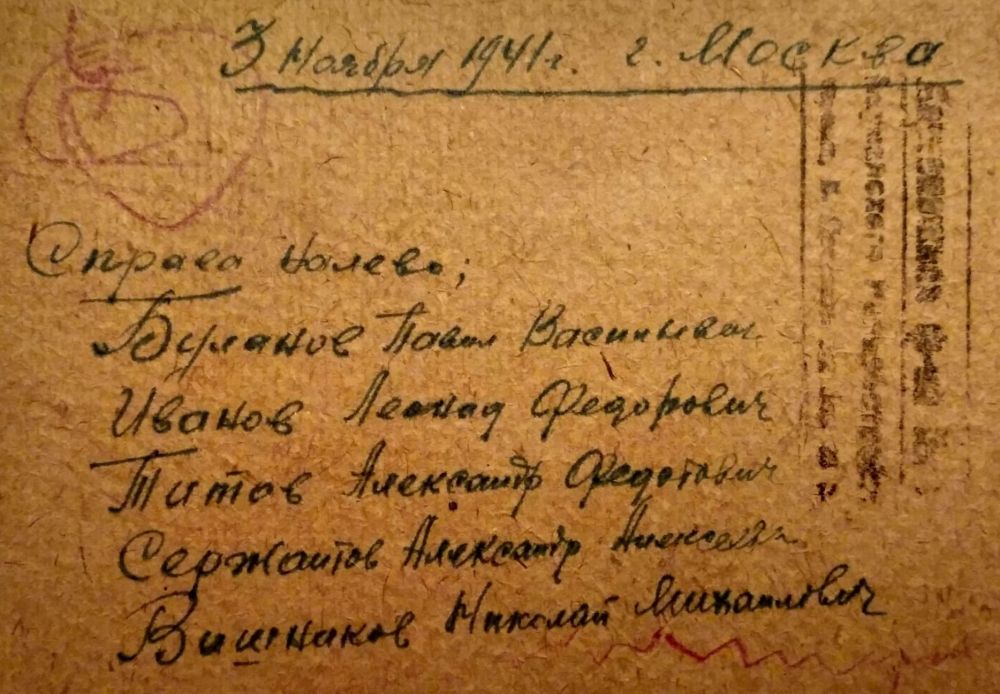 3 Ноября 1941 г. г. Москва
Справа налево;
Буланов Павел Васильевич
Иванов Леонид Федорович
Титов Александр Федотович
Сержантов Александр Алексеевич
Вишняков Николай Михайлович